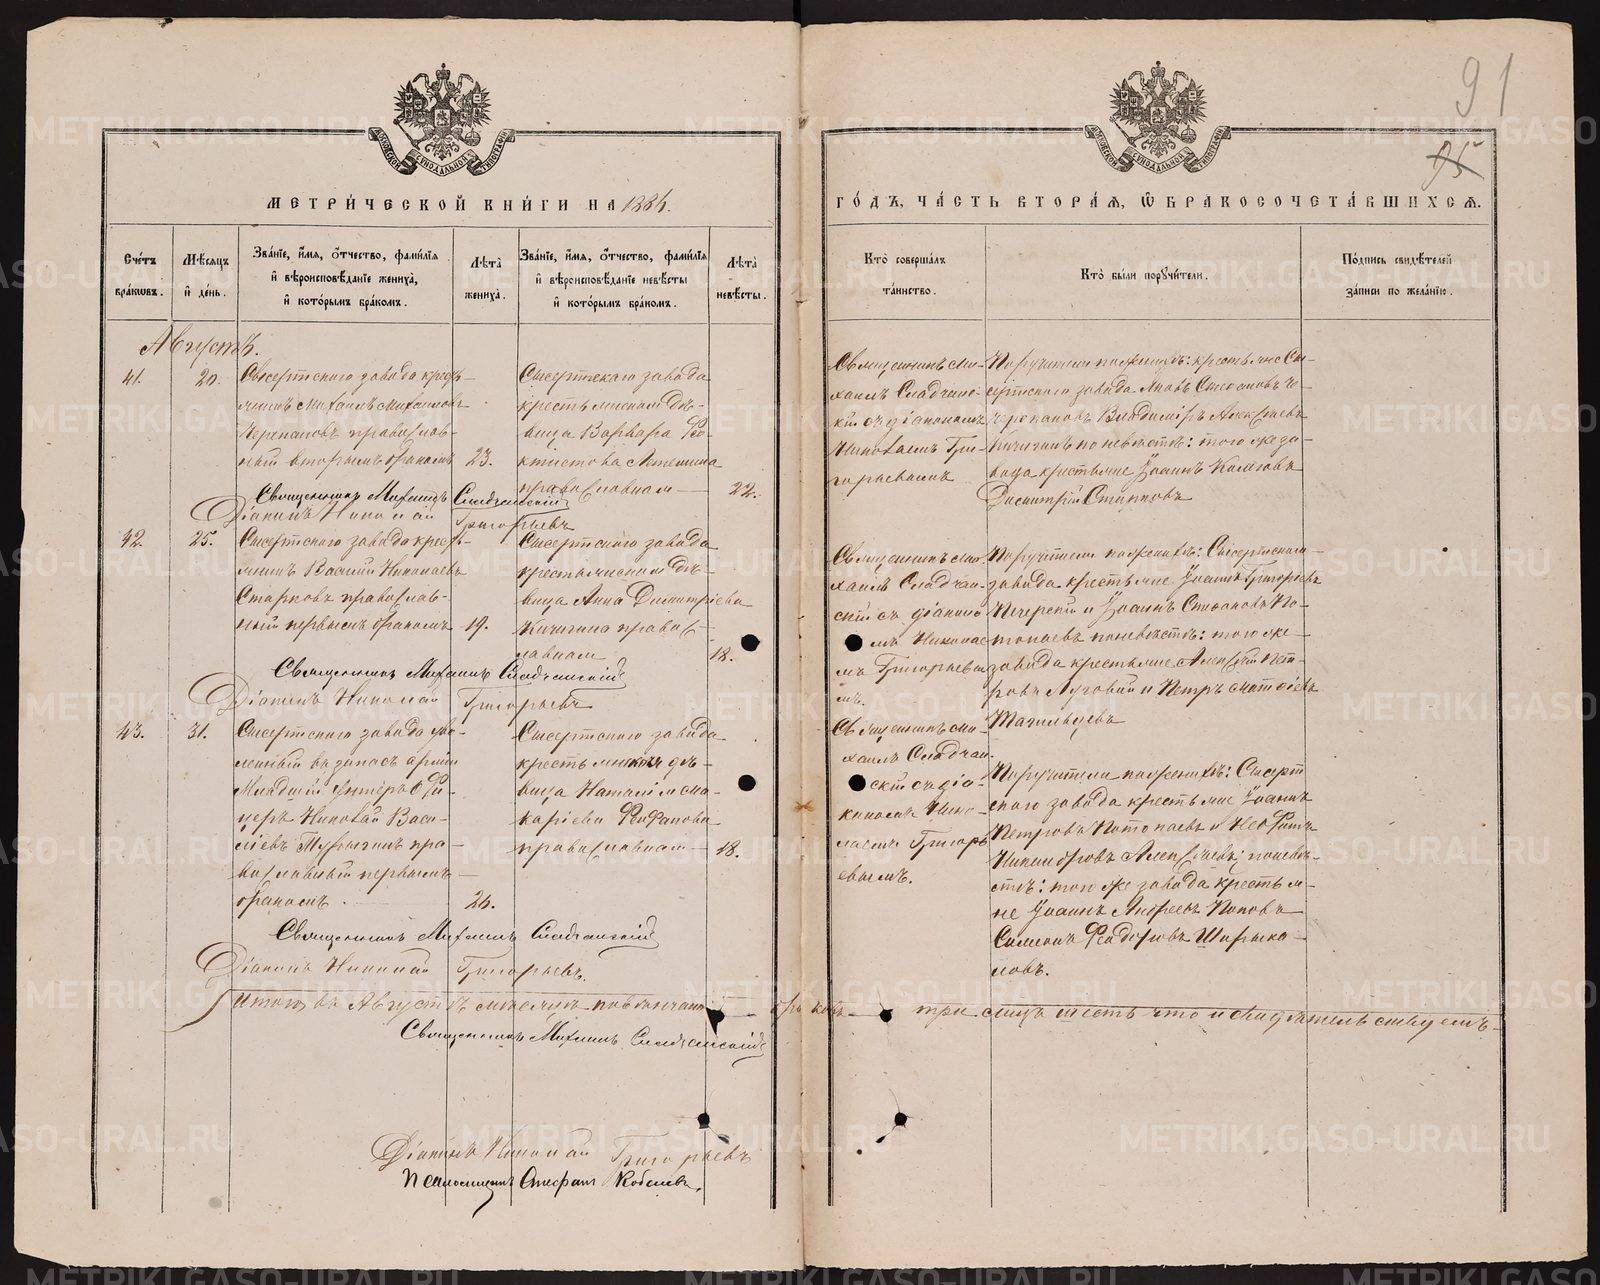 91
95
МЕТРИЧЕСКОЙ КНИГИ НА 1884.
ГОДЪ, ЧАСТЬ ВТОРАЯ, Ѡ БРАКОСОЧЕТАВШИХСЯ.
Счетъ браковъ.
Мѣсяцъ и день.
Званіе, имя, отчество, фамилія и вѣроисповѣданіе жениха, и которымъ бракомъ.
Лѣта жениха.
Званіе, имя, отчество, фамилія и вѣроисповѣданіе невѣсты и которымъ бракомъ.
Лѣта невѣсты.
Кто совершалъ таинство.
Кто были поручители.
Подпись свидѣтелей записи по желанію.
Августъ.
41.
20.
Сысертскаго завода кресть-
янинъ Михаилъ Михаиловъ
Черепановъ православ-
ный вторымъ бракомъ
23.
Сысертскаго завода
крестьянская дѣ-
вица Варвара Фео-
ктистова
православная
22.
Священникъ Ми-
хаилъ Сладчанс-
кій съ діакономъ
Николаемъ Гри-
горьевымъ
Поручители по женихѣ: крестьяне Сы-
сертскаго завода Яковъ Стефановъ Че-
черепановъ Владиміръ Алексѣевъ
Кичигинъ по невѣстѣ: того же за-
вода крестьяне Іоаннъ
Димитрій Старковъ
Священникъ Михаилъ Сладчанскій
Діаконъ Николай Григорьевъ
42.
25.
Сысертскаго завода кресть-
янинъ Василій Николаевъ
Старковъ православ-
ный первымъ бракомъ
19.
Сысертскаго завода
крестьянская дѣ-
вица Анна Димитріева
Кичигина правос-
лавная
18.
Священникъ Ми-
хаилъ Сладчан-
скій съ діаконо-
мъ Николае-
мъ Григорьевы-
мъ.
Поручители по женихѣ: Сысертскаго
завода крестьяне Іоаннъ Григорьевъ
Печерскій и Іоаннъ Стефановъ По-
топаевъ по невѣстѣ: того же
завода крестьяне Алексѣй Пет-
ровъ Луговый и Петръ Матѳіевъ
Тагильцевъ
Священникъ Михаилъ Сладчанскій
Діаконъ Николай Григорьевъ
43.
31.
Сысертскаго завода уво-
ленный въ запасъ арміи
Младшій Унтеръ Офи-
церъ Николай Васи-
ліевъ Турыгинъ пра-
вославный первымъ
бракомъ
24.
Сысертскаго завода
крестьянская дѣ-
вица Наталія Ма-
каріева Феофанова
православная
18.
Священникъ Ми-
хаилъ Сладчан-
скій съ діа-
кономъ Нико-
лаемъ Григорь-
евымъ.
Поручители по женихѣ: Сысерт-
скаго завода крестьяне Іоаннъ
Петровъ Потопаевъ и Неофитъ
Никаноровъ Алексѣевъ; по невѣ-
стѣ: того же завода крестья-
не Іоаннъ Андреевъ Поповъ
Симеонъ Феодоровъ Шарыка-
ловъ.
Священникъ Михаилъ Сладчанскій
Діаконъ Николай Григорьевъ.
Итого въ Августѣ мѣсяцѣ повѣнчано браковъ три лицъ шесть что и свидѣтельствуемъ
Священникъ Михаилъ Сладчанскій
Діаконъ Николай Григорьевъ
Псаломщикъ Стефанъ Кобелевъ.